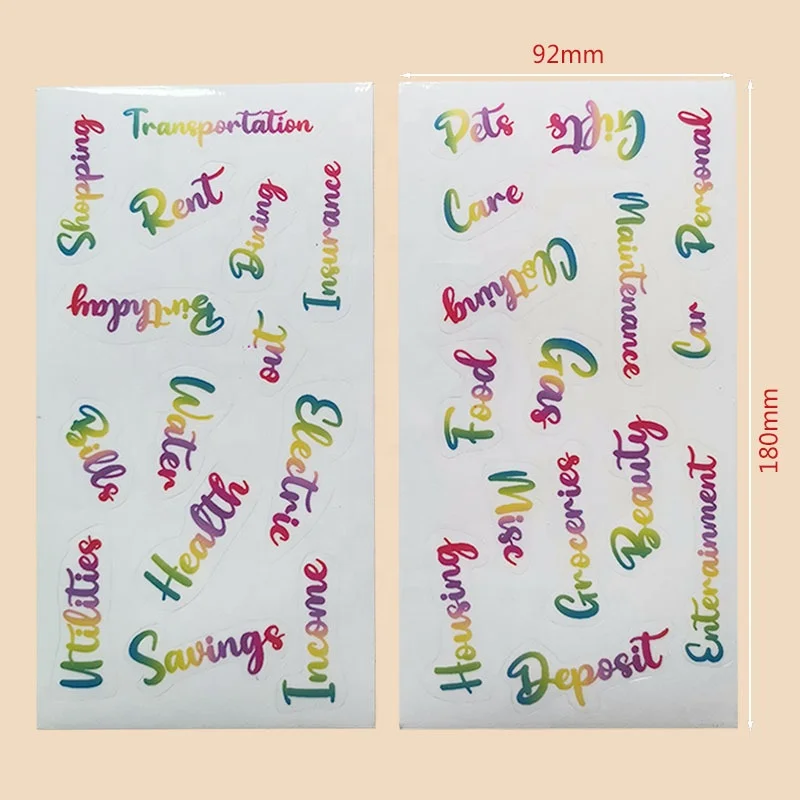 92mm
180mm
Transportation
Shopping
Rent
Dining
Insurance
Birthday
out
Bills
Water
Electric
Health
Utilities
Savings
Income
Pets
Gifts
Personal
Care
Maintenance
Clothing
Car
Food
Gas
Misc
Groceries
Beauty
Enterainment
Housing
Deposit